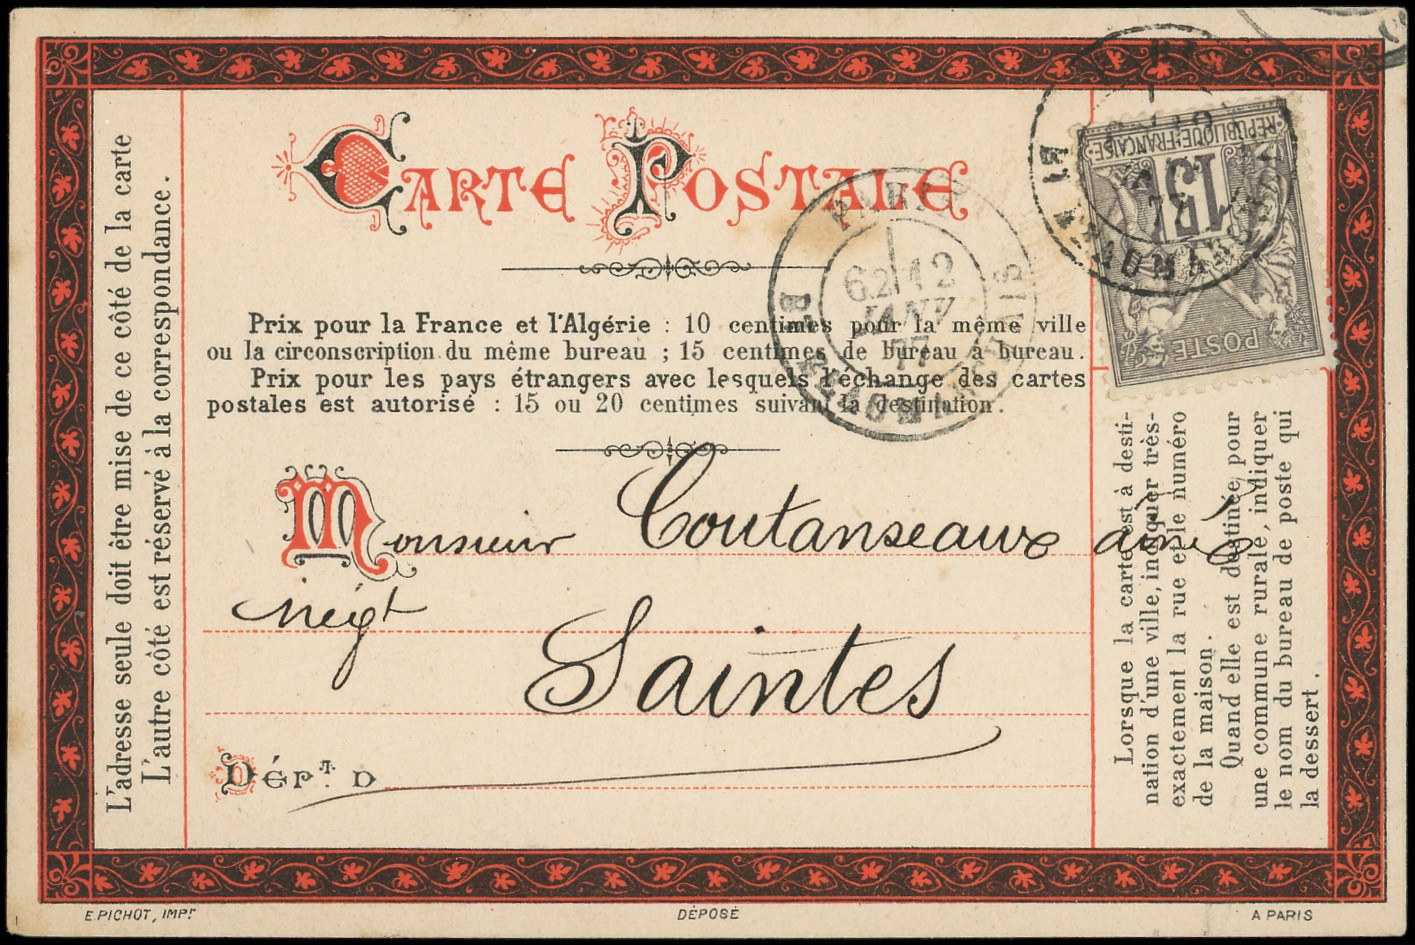 CARTE POSTALE
Prix pour la France et l'Algérie : 10 centimes pour la même ville
ou la circonscription du même bureau ; 15 centimes de bureau à bureau.
Prix pour les pays étrangers avec lesquels l'échange des cartes
postales est autorisé : 15 ou 20 centimes suivant la destination.
Monsieur Coutanseaux aîné
négt
Saintes
DÉPT. D
L'adresse seule doit être mise de ce côté de la carte
L'autre côté est réservé à la correspondance.
Lorsque la carte est à desti-
nation d'une ville, indiquer très-
exactement la rue et le numéro
de la maison.
Quand elle est destinée pour
une commune rurale, indiquer
le nom du bureau de poste qui
la dessert.
RÉPUBLIQUE FRANÇAISE
15
POSTE
PARIS
JANV
77
E. PICHOT, IMPR
DÉPOSÉ
A PARIS